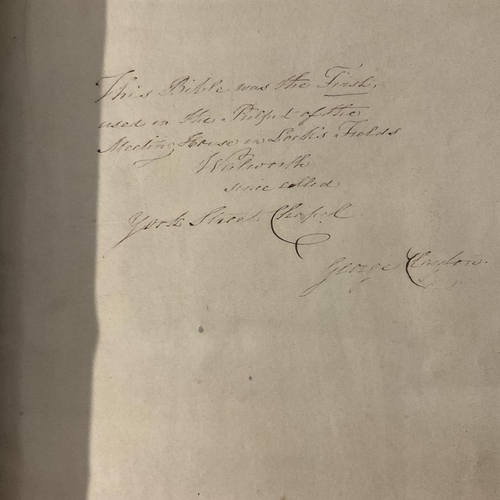 This Bible was the First,
used in the Pulpit of the
Meeting House in Lock's Fields
Walworth
since called
York Street Chapel
George Clayton.